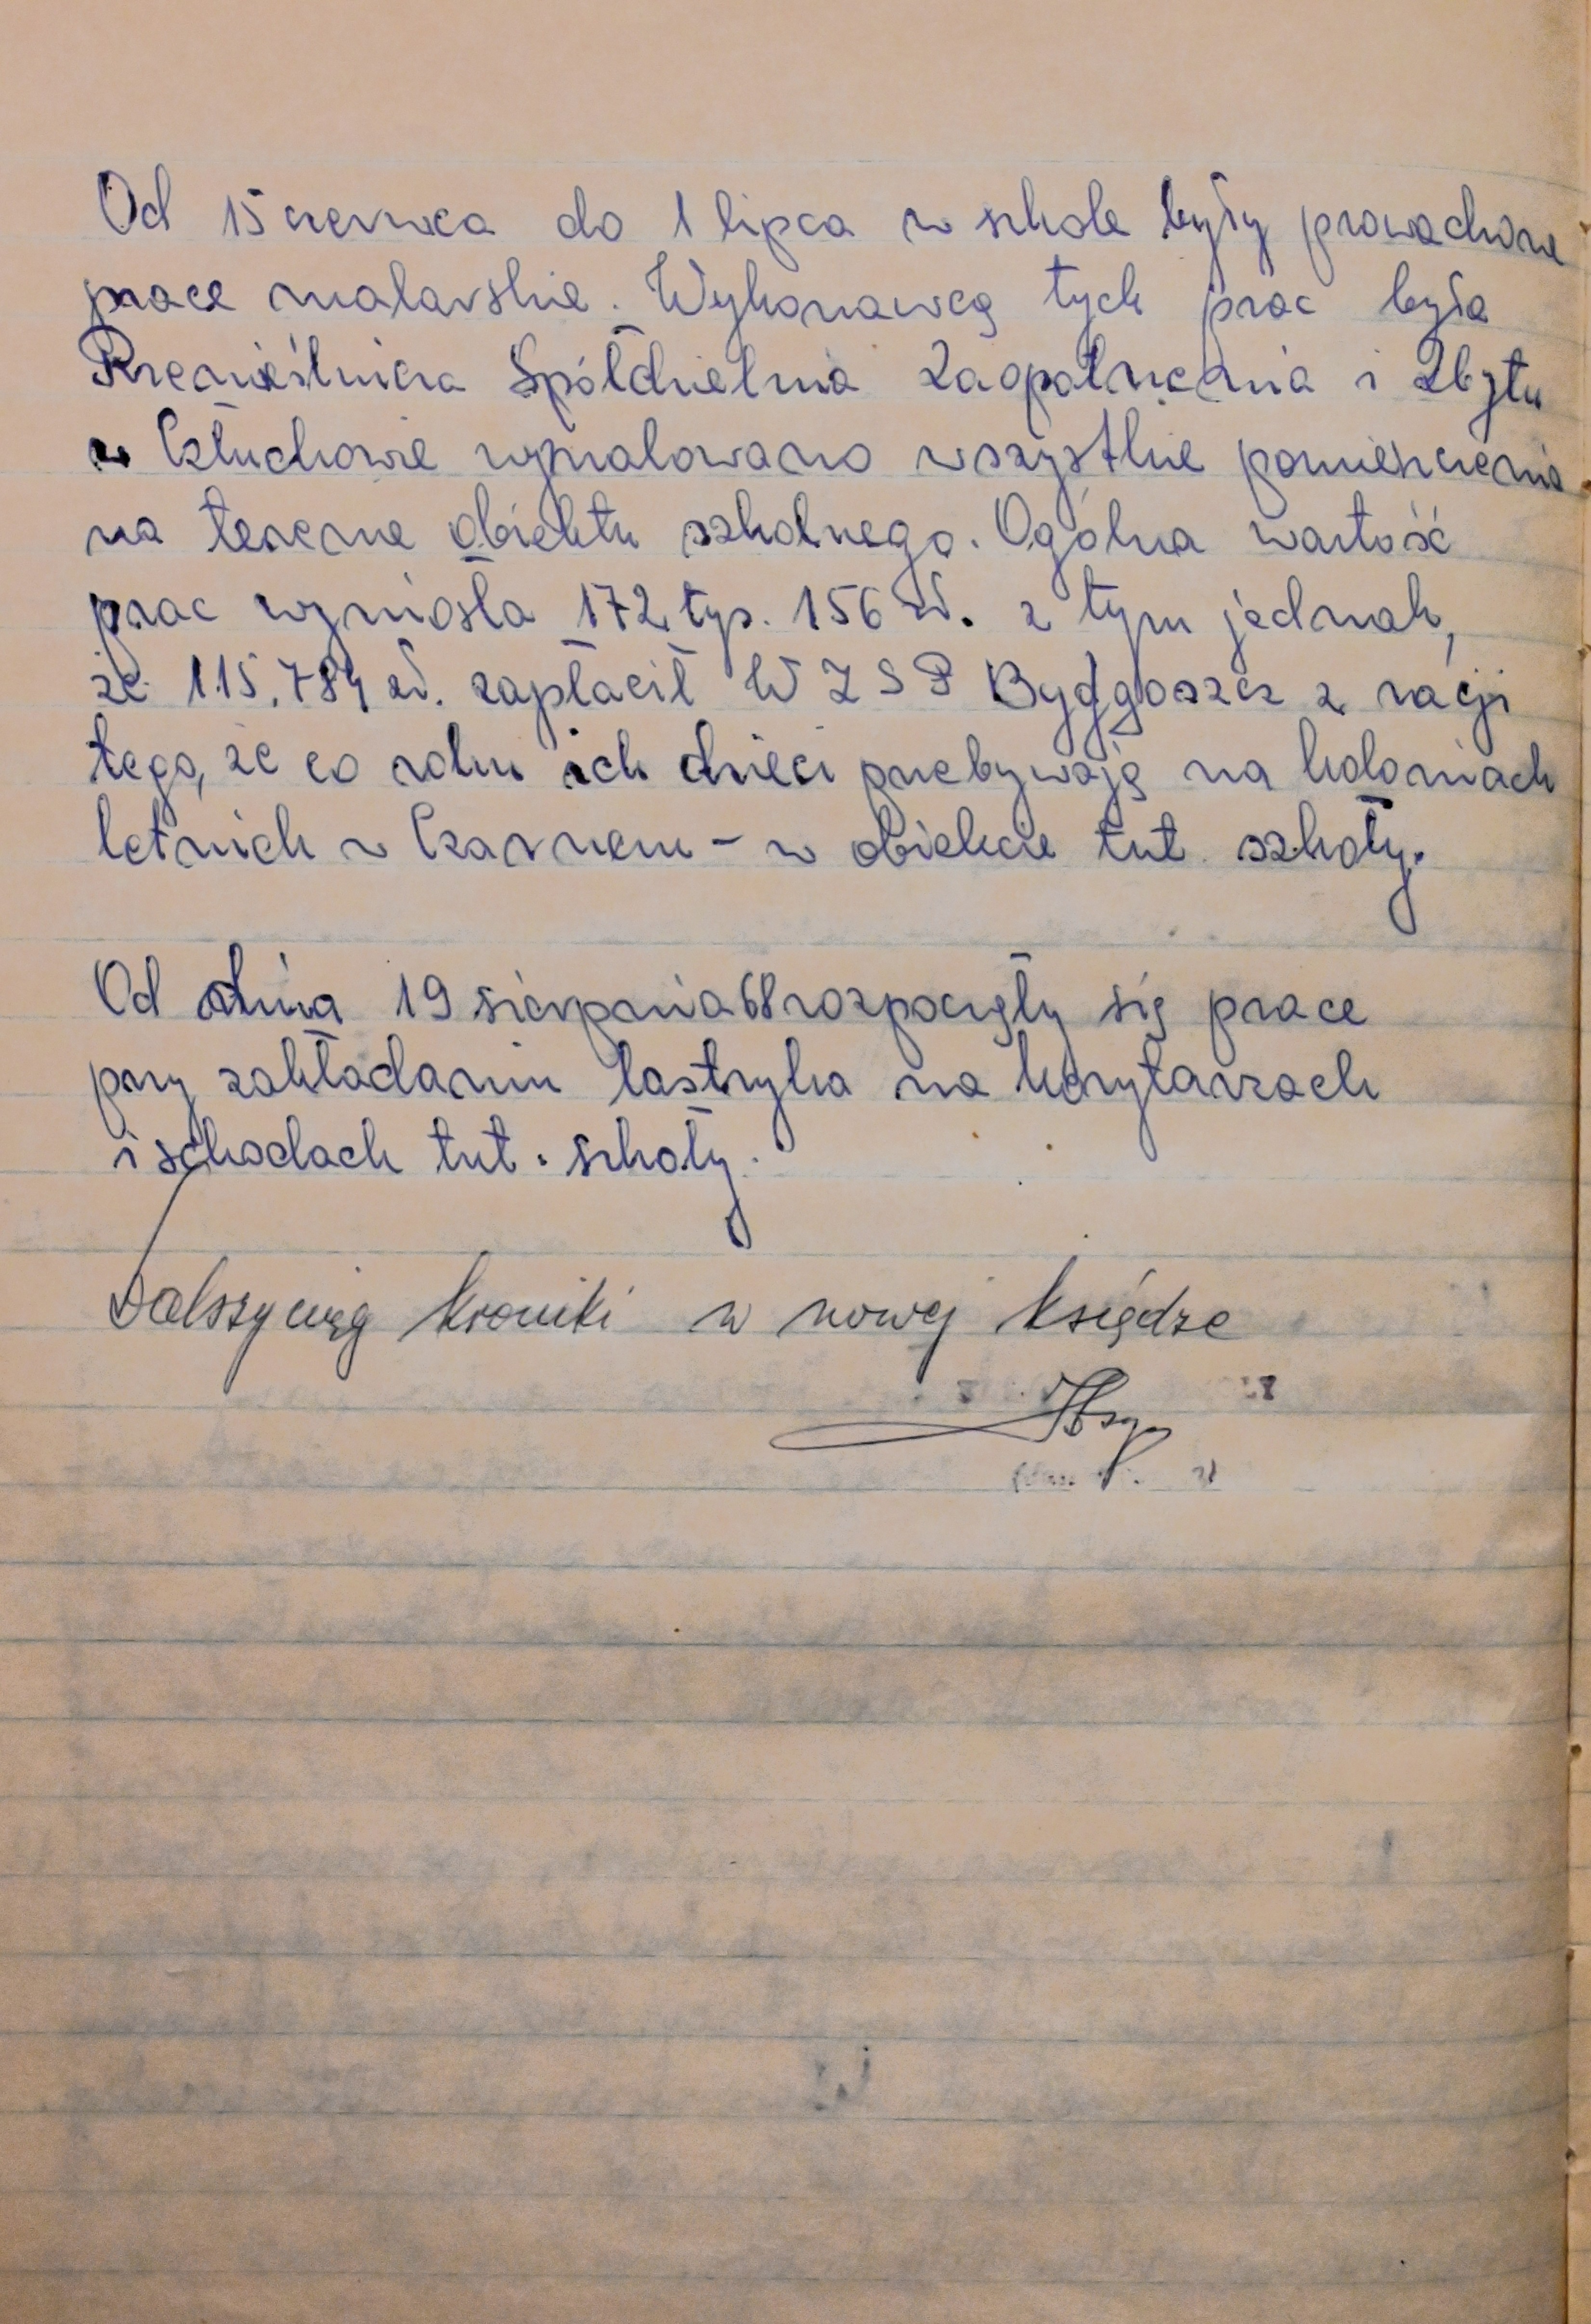 Od 15 czerwca do 1 lipca w szkole były prowadzone
prace malarskie. Wykonawcą tych prac była
Rzemieślnicza Spółdzielnia Zaopatrzenia i Zbytu
w Człuchowie wymalowano wszystkie pomieszczenia
na terenie obiektu szkolnego. Ogólna wartość
prac wyniosła 172 tys. 156 zł. z tym jednak,
że 115.784 zł. zapłacił WZSP Bydgoszcz z racji
tego, że co roku ich dzieci przebywają na koloniach
letnich w Czarnem - w obiekcie tut. szkoły.
Od dnia 19 sierpnia 68 rozpoczęły się prace
przy zakładaniu lastryka na korytarzach
i schodach tut. szkoły.
Dalszy ciąg kroniki w nowej księdze